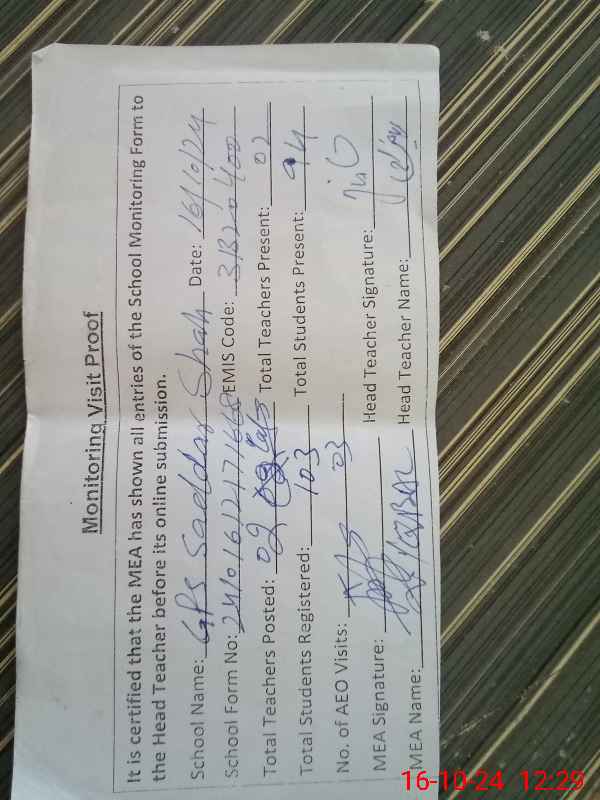 Monitoring Visit Proof
It is certified that the MEA has shown all entries of the School Monitoring Form to
the Head Teacher before its online submission.
School Name: GPS Saeldar Shah Date: 16/10/24
School Form No: EMIS Code:
Total Teachers Posted: 02 Total Teachers Present: 02
Total Students Registered: 103 Total Students Present: 94
No. of AEO Visits: 03
MEA Signature: Head Teacher Signature:
MEA Name: Head Teacher Name:
16-10-24 12:29